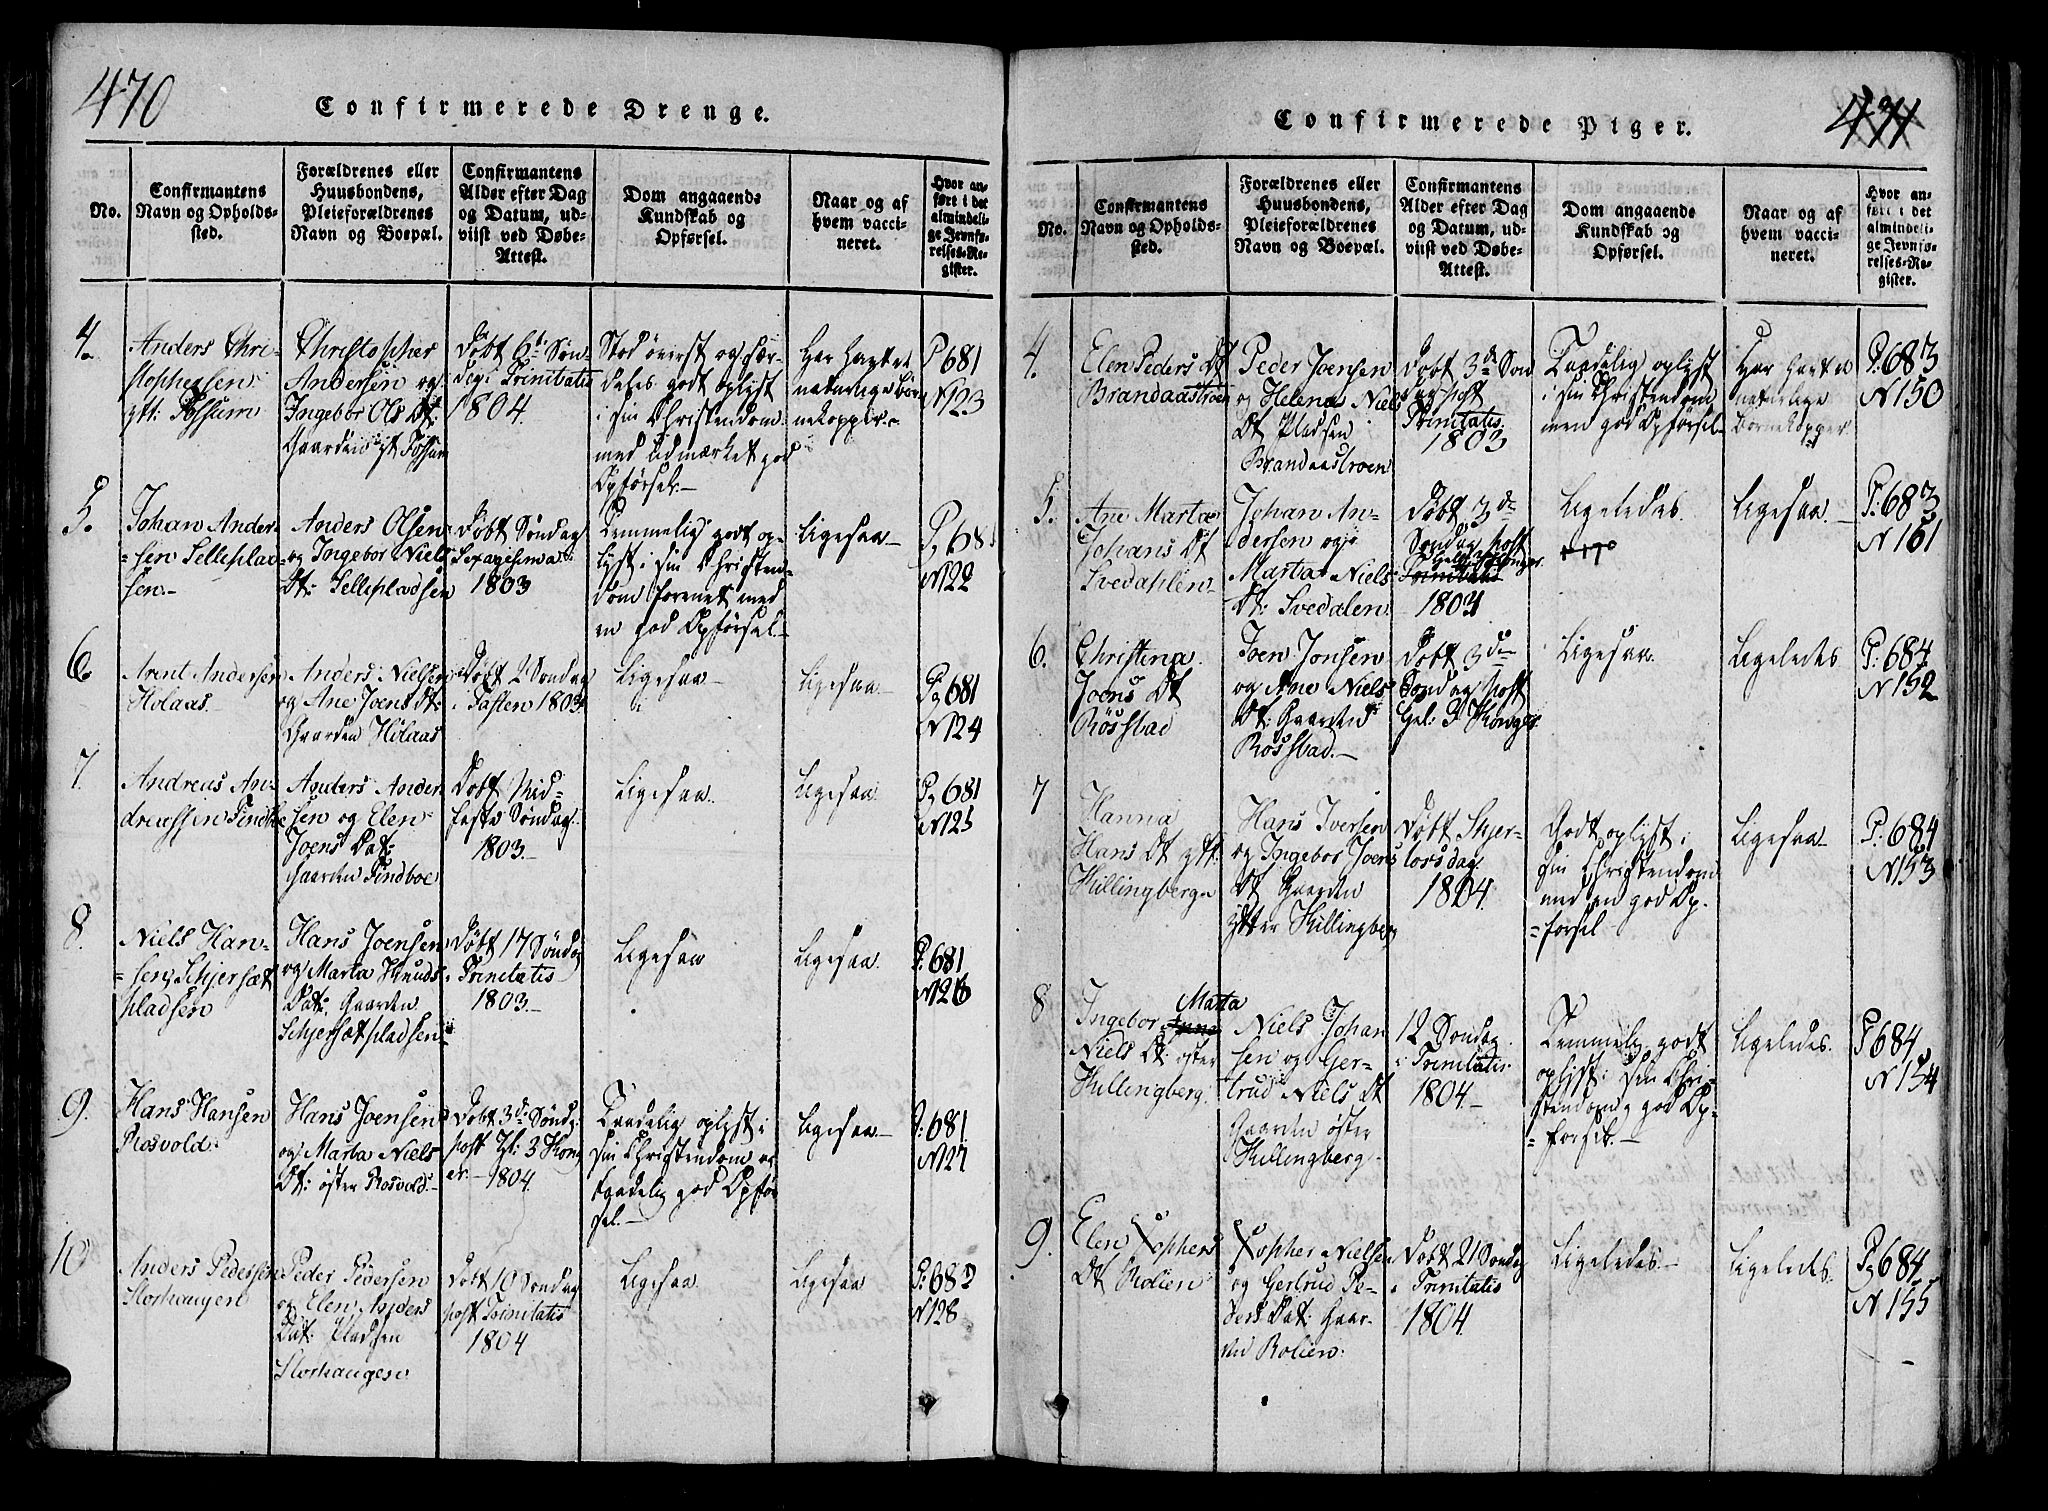 470
Confirmerede Drenge.
No.
Confirmantens
Navn og Opholds-
sted.
Forældrenes eller
Huusbondens,
Pleieforældrenes
Navn og Boepæl.
Confirmantens
Alder efter Dag
og Datum, ud-
viist ved Døbe-
Attest.
Dom angaaende
Kundskab og
Opførsel.
Naar og af
hvem vacci-
neret.
Hvor an-
ført i det
almindeli-
ge Jevnfø-
relses-Re-
gister.
4.
Anders Chri-
stophersen
ytt: Fossum
Christopher
Andersen og
Ingebor Ols Dt:
Gaarden yt Fossum
Døbt 6te Søn-
dag i Trinitatis
1804.
Stod øverst og sær-
deles godt oplyst
i sin Christendom
med udmærket god
Opførsel.-
Har havt de
naturlige Bør-
nekopper.
P 681
N 123
5.
Johan Ander-
sen Selleplad-
sen.-
Anders Olsen
og Ingebor Niels
Dt: Sellepladsen
Døbt Søndag
Sexagesima
1803
Temmelig godt op-
lyst i sin Christen-
dom forenet med
en god Opførsel.-
Ligesaa-
P. 681
N 122
6
Arent Andersen
Holaas.
Anders Nielsen
og Ane Joens Dt:
Gaarden Holaas
Døbt 2 Søndag
i Fasten 1803
Ligesaa
Ligesaa-
Pg 681
N 124
7.
Andreas An-
dreassen Tindboe
Anders Ander-
sen og Elen
Joens Dat:
Gaarden Tindboe
Døbt Mid-
faste Søndag
1803.-
Ligesaa.
Ligesaa.
Pg 681
N 125
8.
Niels Han-
sen Schjersæt
pladsen
Hans Joensen
og Marta Knuds
Dat: Gaarden
Schjersætpladsen
Døbt 17 Søndag
Trinitatis
1803.-
Ligesaa
Ligesaa.
P: 681
N 126
9.
Hans Hansen
Rosvold:
Hans Joensen
og Marta Niels
Dt: øster Rosvold.-
Døbt 3de Søndg.
post Hl: 3 Kong
er.- 1804.
Taadelig oplyst i
sin Christendom og
taadelig god Opfør
sel.-
Ligesaa-
P: 681
N 127
10
Anders Pedersen
Storhaugen
Peder Pedersen
og Elen Anders
Dat: Pladsen
Storhaugen
Døbt 10 Søndag
post Trinitatis
1804
Ligesaa.
Ligesaa
P: 682
N 128
471
Confirmerede Piger.
No.
Confirmantens
Navn og Opholds-
sted.
Forældrenes eller
Huusbondens,
Pleieforældrenes
Navn og Boepæl.
Confirmantens
Alder efter Dag
og Datum, ud-
viist ved Døbe-
Attest.
Dom angaaende
Kundskab og
Opførsel.
Naar og af
hvem vacci-
neret.
Hvor an-
ført i det
almindeli-
ge Jevnfø-
relses-Re-
gister.
4.
Elen Peders Dt
Brandaastroen
Peder Joensen
og Helena Niels
Dt Pladsen
Brandaastroen
Døbt 3de Søn
dag post
Trinitatis
1803
Taadelig oplyst
i sin Christendom
men god Opførsel.
Har havt de
naturlige
Børnekopper.
P: 683
N 150
5.
Ane Marta
Johans Dt
Svedahlen
Johan An-
dersen og
Marta Niels
Dt: Svedalen
Døbt 3de
Søndag post
Trinitatis
1804
Ligeledes.
Ligesaa.-
P: 683
N 151
6.
Christina
Joens Dt
Rösstad
Joen Jonsen
og Ane Niels
Dt: Gaarden
Rösstad.-
Døbt 3de
Søndag post
Hel: 3 Konger
Ligesaa.
Ligeledes
P: 684
N 152
7
Hanna
Hans Dt ytt:
Hillingberg
Hans Iversen
og Ingebor Joens
Dt Gaarden
ytter Hillingberg
Døbt Skjer-
torsdag
1804.
Godt oplyst i
sin Christendom
med en god Op-
førsel
Ligesaa-
P: 684
N 153
8
Ingebor Marta
Niels Dt: øster
Hillingberg.
Niels Johan
sen og Ger-
trud Niels Dt
Gaarden øster
Hillingberg.
12 Søndag
i Trinitatis
1804.-
Temmelig godt
oplyst i sin Chri-
stendom, god Op-
førsel.-
Ligeledes.
P 684
N 154
9.
Elen Xophers
Dt Rolien
Xopher Nielsen
og Gertrud Pe-
ders Dat: Gaar-
den Rolien.
Døbt 21 Søndag
i Trinitatis
1804
Ligeledes.-
Ligeledes.
Pg 684
N 155